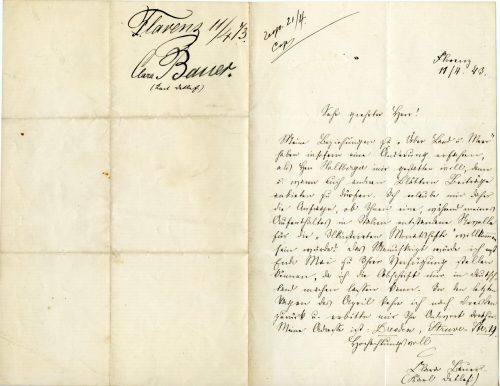 Florenz 11/4 73.
Clara Bauer.
(Karl Detlef)
resp. 21/4.
Cop.
Florenz
11/4. 73.
Sehr geehrter Herr!
Meine Beziehungen zu „Über Land u. Meer"
haben insofern eine Änderung erfahren,
als Herr Hallberger mir gestatten will, dann
u. wann auch anderen Blättern Beiträge
zu dürfen. Ich erlaube mir daher
die Anfrage, ob Ihnen eine, während meines
Aufenthaltes in Italien entstandene Novelle
für die „Illustrirten Monatshefte" willkommen
sein würde? Das Manuskript würde ich
Ende Mai zu Ihrer Verfügung stellen
können, da ich die Abschrift nur in Deutsch-
land machen lassen kann. In den letzten
Tagen des April kehre ich nach Dresden
zurück u. erbitte mir Ihre Antwort dorthin.
Meine Adresse ist: Dresden, Struve-Str.
Hochachtungsvoll
Clara Bauer
(Karl Detlef)